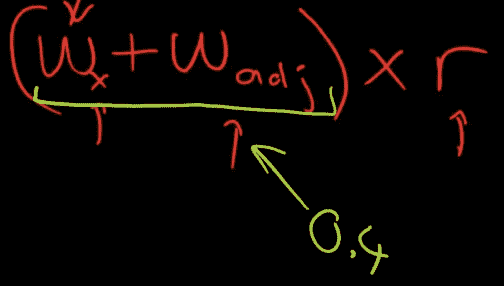 (Wx + Wadj) × r
0.4